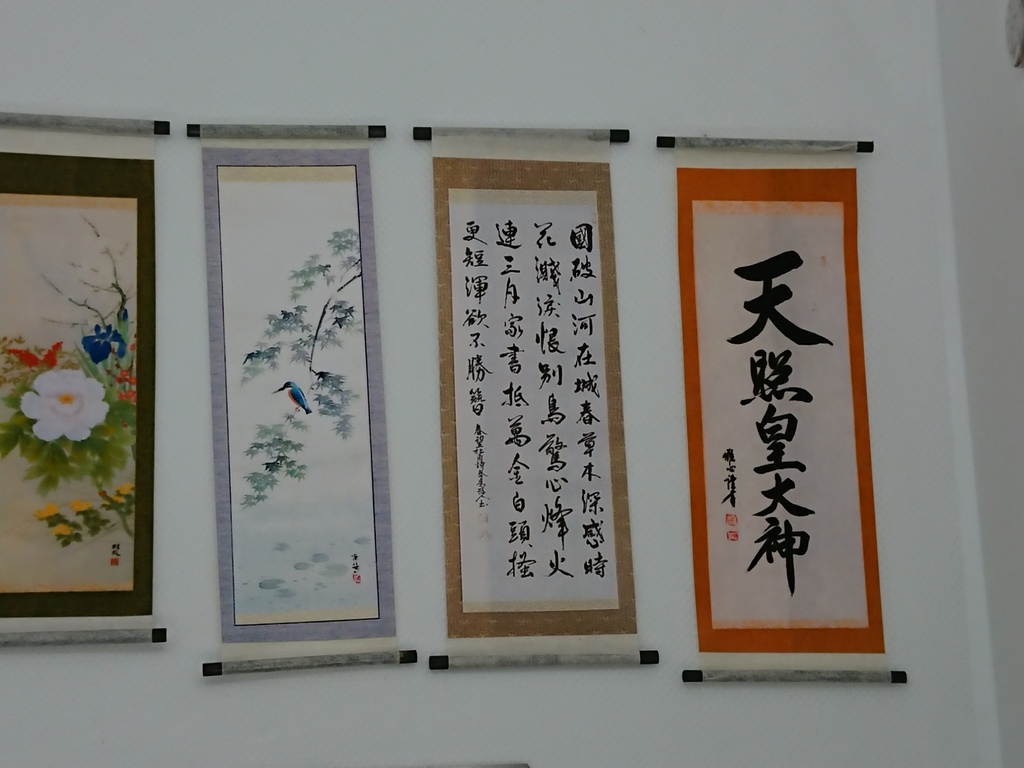 天照皇大神
國破山河在城春草木深感時
花濺淚恨別鳥驚心烽火
連三月家書抵萬金白頭搔
更短渾欲不勝簪